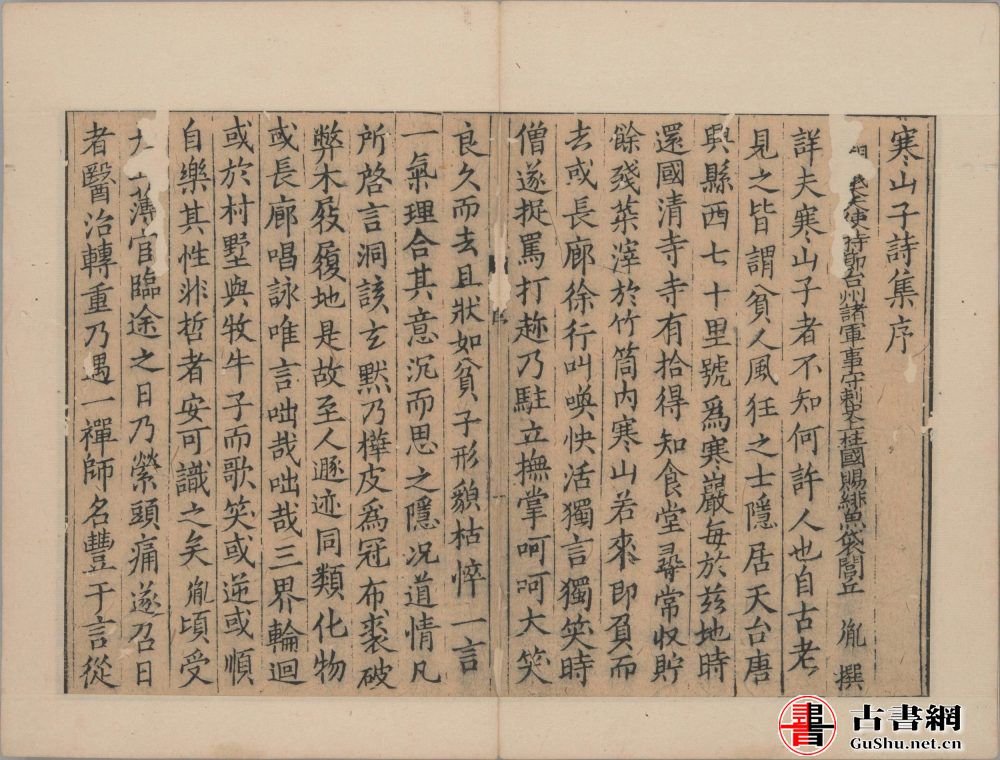 寒山子詩集序
使持節台州諸軍事守刺史上柱國賜緋魚袋閭丘胤撰
詳夫寒山子者不知何許人也自古老
見之皆謂貧人風狂之士隱居天台唐
興縣西七十里號爲寒巖每於兹地時
還國清寺寺有拾得知食堂尋常收貯
餘殘菜滓於竹筒内寒山若來即負而
去或長廊徐行叫喚快活獨言獨笑時
僧遂捉罵打趂乃駐立撫掌呵呵大笑
良久而去且狀如貧子形貌枯悴一言
一氣理合其意沉而思之隱况道情凡
所啓言洞該玄默乃樺皮爲冠布裘破
弊木屐履地是故至人遯迹同類化物
或長廊唱詠唯言咄哉咄哉三界輪迴
或於村墅與牧牛子而歌笑或逆或順
自樂其性非哲者安可識之矣胤頃受
薄官臨途之日乃縈頭痛遂召日
者醫治轉重乃遇一禪師名豐干言從
古書網
GuShu.net.cn